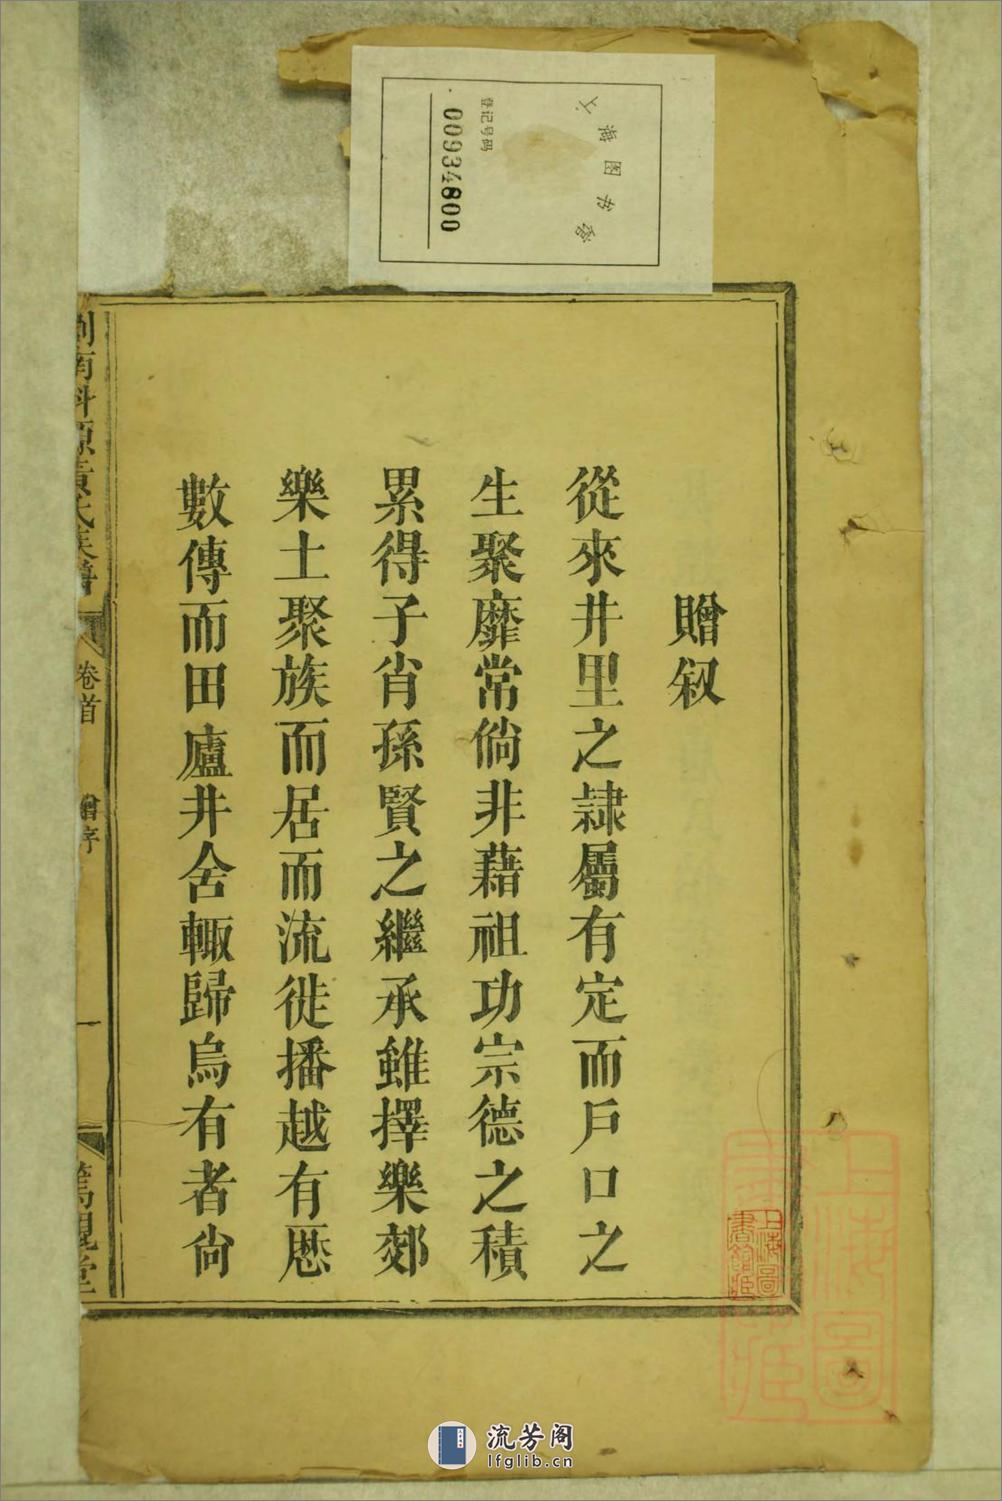 上海图书馆
登记号码
00934800
贈叙
從來井里之隷屬有定而戶口之
生聚靡常倘非藉祖功宗德之積
累得子肖孫賢之繼承雖擇樂郊
樂土聚族而居而流徙播越有厯
數傳而田廬井舍輙歸烏有者尙
南科源黃氏族譜
卷首
贈序
一
篤親堂
上海圖書館藏
上海圖書館藏
流芳阁
lfglib.cn